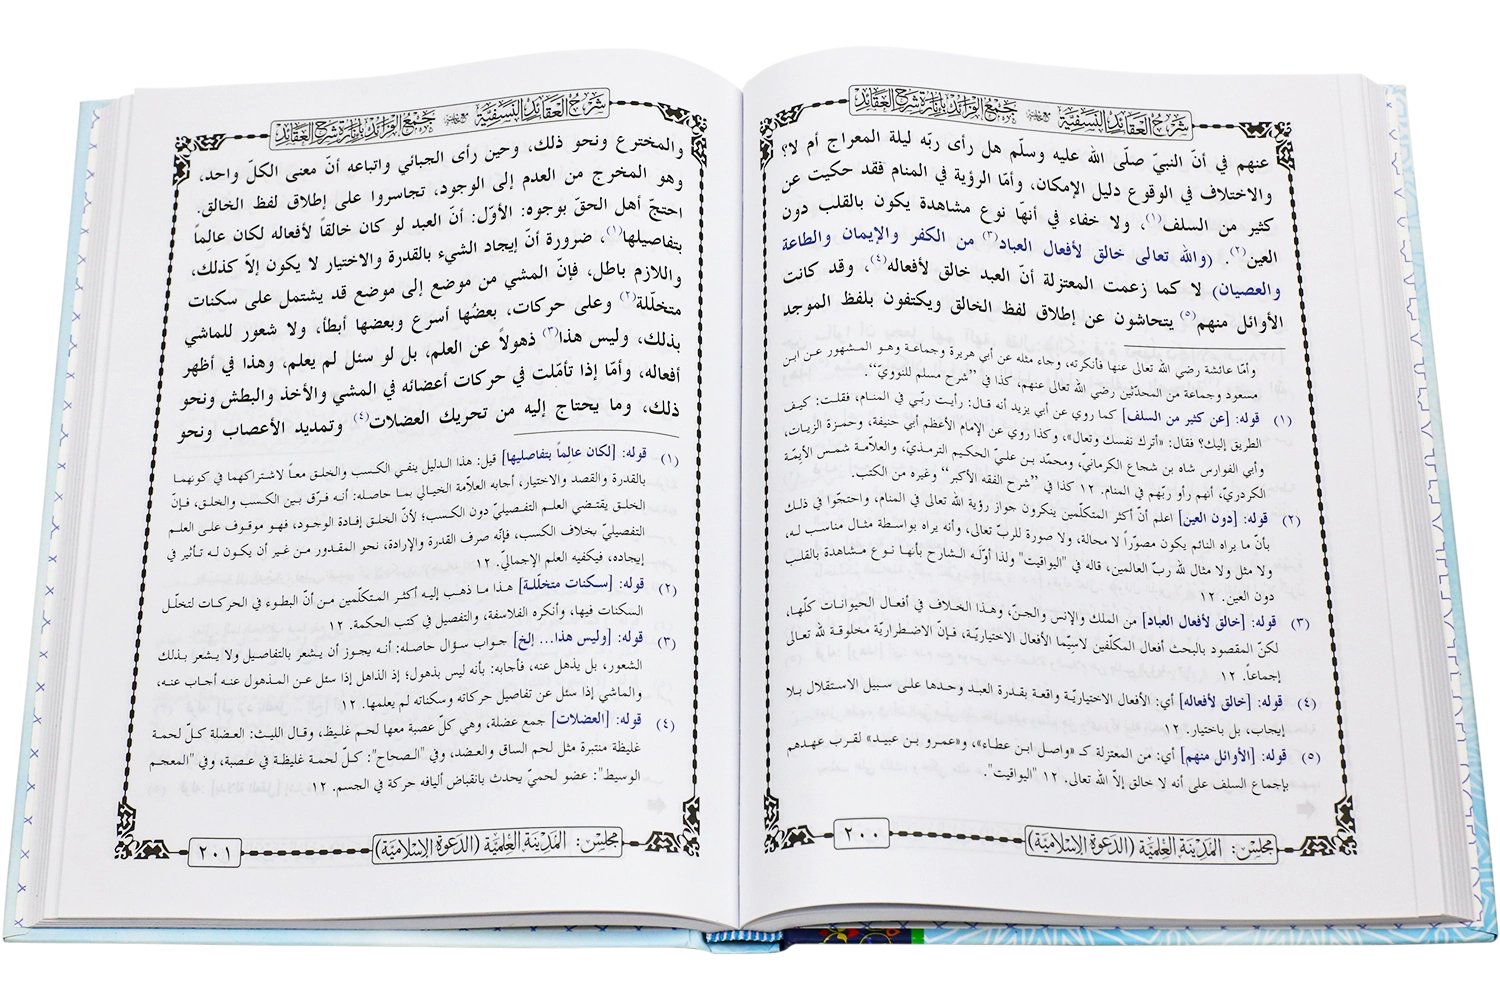 شرح العقائد النسفية مع حاشية جمع الفرائد بإنارة شرح العقائد
عنهم في أنّ النبيّ صلّى الله عليه وسلّم هل رأى ربّه ليلة المعراج أم لا؟
والاختلاف في الوقوع دليل الإمكان، وأمّا الرؤية في المنام فقد حكيت عن
كثير من السلف(١)، ولا خفاء في أنّها نوع مشاهدة يكون بالقلب دون
العين(٢). (والله تعالى خالق لأفعال العباد(٣) من الكفر والإيمان والطاعة
والعصيان) لا كما زعمت المعتزلة أنّ العبد خالق لأفعاله(٤)، وقد كانت
الأوائل منهم(٥) يتحاشون عن إطلاق لفظ الخالق ويكتفون بلفظ الموجد
وأمّا عائشة رضي الله تعالى عنها فأنكرته، وجاء مثله عن أبي هريرة وجماعة وهو المشهور عن ابن
مسعود وجماعة من المحدّثين رضي الله تعالى عنهم، كذا في "شرح مسلم للنوويّ".
(١) قوله: [عن كثير من السلف] كما روي عن أبي يزيد أنه قال: رأيت ربّي في المنام، فقلت: كيف
الطريق إليك؟ فقال: «أترك نفسك وتعال»، وكذا روي عن الإمام الأعظم أبي حنيفة، وحمزة الزيات،
وأبي الفوارس شاه بن شجاع الكرمانيّ، ومحمّد بن عليّ الحكيم الترمذيّ، والعلاّمة شمس الأيمّة
الكردريّ، أنهم رأو ربّهم في المنام. ١٢ كذا في "شرح الفقه الأكبر" وغيره من الكتب.
(٢) قوله: [دون العين] اعلم أنّ أكثر المتكلّمين ينكرون جواز رؤية الله تعالى في المنام، واحتجّوا في ذلك
بأنّ ما يراه النائم يكون مصوّراً لا محالة، ولا صورة للربّ تعالى، وأنه يراه بواسطة مثال مناسب له،
ولا مثل ولا مثال لله ربّ العالمين، قاله في "اليواقيت" ولذا أوّله الشارح بأنها نوع مشاهدة بالقلب
دون العين. ١٢
(٣) قوله: [خالق لأفعال العباد] من الملك والإنس والجنّ، وهذا الخلاف في أفعال الحيوانات كلّها،
لكنّ المقصود بالبحث أفعال المكلّفين لاسيّما الأفعال الاختياريّة، فإنّ الاضطراريّة مخلوقة لله تعالى
إجماعاً. ١٢
(٤) قوله: [خالق لأفعاله] أي: الأفعال الاختياريّة واقعة بقدرة العبد وحدها على سبيل الاستقلال بلا
إيجاب، بل باختيار. ١٢
(٥) قوله: [الأوائل منهم] أي: من المعتزلة كـ «واصل ابن عطاء»، و«عمرو بن عبيد» لقرب عهدهم
بإجماع السلف على أنه لا خالق إلاّ الله تعالى. ١٢ "اليواقيت".
مجلس: المدينة العلمية (الدعوة الإسلامية)
٢٠٠
شرح العقائد النسفية مع حاشية جمع الفرائد بإنارة شرح العقائد
والمخترع ونحو ذلك، وحين رأى الجبائي واتباعه أنّ معنى الكلّ واحد،
وهو المخرج من العدم إلى الوجود، تجاسروا على إطلاق لفظ الخالق.
احتجّ أهل الحقّ بوجوه: الأوّل: أنّ العبد لو كان خالقاً لأفعاله لكان عالماً
بتفاصيلها(١)، ضرورة أنّ إيجاد الشيء بالقدرة والاختيار لا يكون إلاّ كذلك،
واللازم باطل، فإنّ المشي من موضع إلى موضع قد يشتمل على سكنات
متخلّلة(٢) وعلى حركات، بعضُها أسرع وبعضها أبطأ، ولا شعور للماشي
بذلك، وليس هذا(٣) ذهولاً عن العلم، بل لو سئل لم يعلم، وهذا في أظهر
أفعاله، وأمّا إذا تأمّلت في حركات أعضائه في المشي والأخذ والبطش ونحو
ذلك، وما يحتاج إليه من تحريك العضلات(٤) وتمديد الأعصاب ونحو
(١) قوله: [لكان عالِماً بتفاصليها] قيل: هذا الدليل ينفي الكسب والخلق معاً لاشتراكهما في كونهما
بالقدرة والقصد والاختيار، أجابه العلاّمة الخيالي بما حاصله: أنه فرّق بين الكسب والخلق، فإنّ
الخلق يقتضي العلم التفصيليّ دون الكسب؛ لأنّ الخلق إفادة الوجود، فهو موقوف على العلم
التفصيليّ بخلاف الكسب، فإنّه صرف القدرة والإرادة، نحو المقدور من غير أن يكون له تأثير في
إيجاده، فيكفيه العلم الإجماليّ. ١٢
(٢) قوله: [سكنات متخلّلة] هذا ما ذهب إليه أكثر المتكلّمين من أنّ البطوء في الحركات لتخلّل
السكنات فيها، وأنكره الفلاسفة، والتفصيل في كتب الحكمة. ١٢
(٣) قوله: [وليس هذا... إلخ] جواب سؤال حاصله: أنه يجوز أن يشعر بالتفاصيل ولا يشعر بذلك
الشعور، بل يذهل عنه، فأجابه: بأنه ليس بذهول؛ إذ الذاهل إذا سئل عن المذهول عنه أجاب عنه،
والماشي إذا سئل عن تفاصيل حركاته وسكناته لم يعلمها. ١٢
(٤) قوله: [العضلات] جمع عضلة، وهي كلّ عصبة معها لحم غليظ، وقال الليث: العضلة كلّ لحمة
غليظة منتبرة مثل لحم الساق والعضد، وفي "الصحاح": كلّ لحمة غليظة في عصبة، وفي "المعجم
الوسيط": عضو لحميّ يحدث بانقباض أليافه حركة في الجسم. ١٢
مجلس: المدينة العلمية (الدعوة الإسلامية)
٢٠١